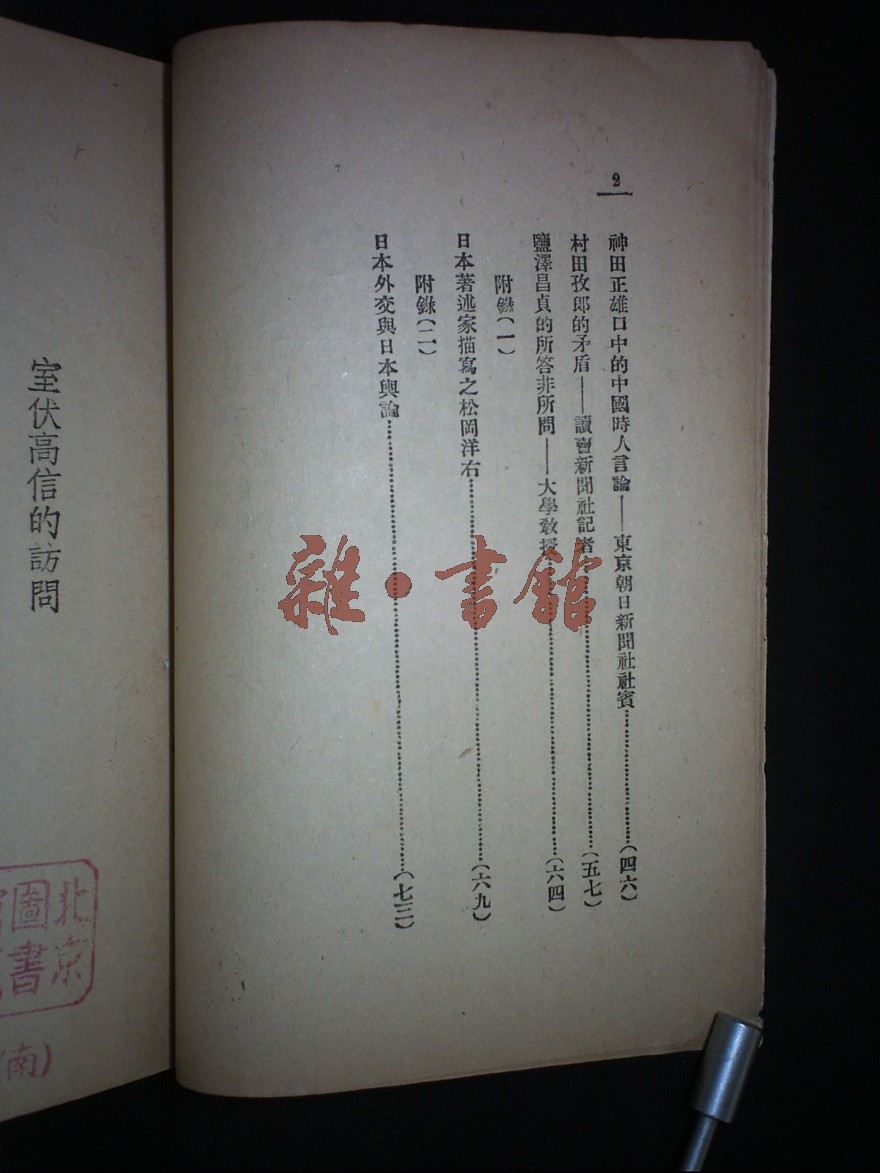 2
神田正雄口中的中國時人言論——東京朝日新聞社社賓…………(四六)
村田孜郎的矛盾——讀賣新聞社記者…………(五七)
鹽澤昌貞的所答非所問——大學敎授…………(六四)
附錄(一)
日本著述家描寫之松岡洋右…………(六九)
附錄(二)
日本外交與日本輿論…………(七三)
室伏高信的訪問
雜·書館
北京
圖書
(南)